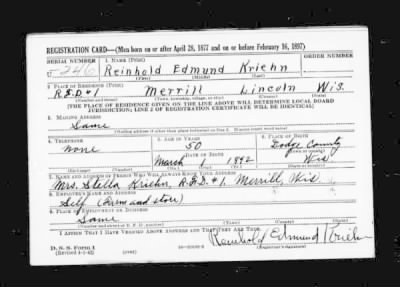 REGISTRATION CARD—(Men born on or after April 28, 1877 and on or before February 16, 1897)
SERIAL NUMBER 1. NAME (Print) ORDER NUMBER
246 Reinhold Edmund Kriehn
(First) (Middle) (Last)
2. PLACE OF RESIDENCE (Print)
R.F.D #1 Merrill Lincoln Wis.
(Number and street) (Town, township, village, or city) (County) (State)
[THE PLACE OF RESIDENCE GIVEN ON THE LINE ABOVE WILL DETERMINE LOCAL BOARD
JURISDICTION; LINE 2 OF REGISTRATION CERTIFICATE WILL BE IDENTICAL]
3. MAILING ADDRESS
Same
[Mailing address if other than place indicated on line 2. If same insert word same]
4. TELEPHONE 5. AGE IN YEARS 6. PLACE OF BIRTH
None 50 Dodge County
DATE OF BIRTH
March 1 1892 Wis
7. NAME AND ADDRESS OF PERSON WHO WILL ALWAYS KNOW YOUR ADDRESS
Mrs. Stella Kriehn, R.F.D. #1, Merrill, Wis
8. EMPLOYER'S NAME AND ADDRESS
Self (Farm and store)
9. PLACE OF EMPLOYMENT OR BUSINESS
Same
(Number and street or R. F. D. number) (Town) (County) (State)
I AFFIRM THAT I HAVE VERIFIED ABOVE ANSWERS AND THAT THEY ARE TRUE.
D. S. S. Form 1
(Revised 4-1-42) (over) Reinhold Edmund Kriehn
(Registrant's signature)